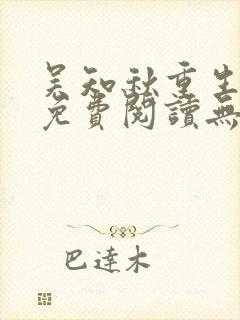 吴知秋重生
免費閱讀無
巴達木